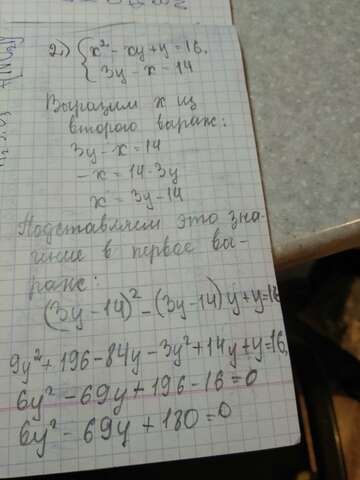 2.) { x² - xy + y = 16,
3y - x = 14
Выразим х из
второго выраж:
3y - x = 14
-x = 14 - 3y
x = 3y - 14
Подставляем это зна-
чение в первое вы-
раж:
(3y - 14)² - (3y - 14) y + y = 16
9y² + 196 - 84y - 3y² + 14y + y = 16,
6y² - 69y + 196 - 16 = 0
6y² - 69y + 180 = 0